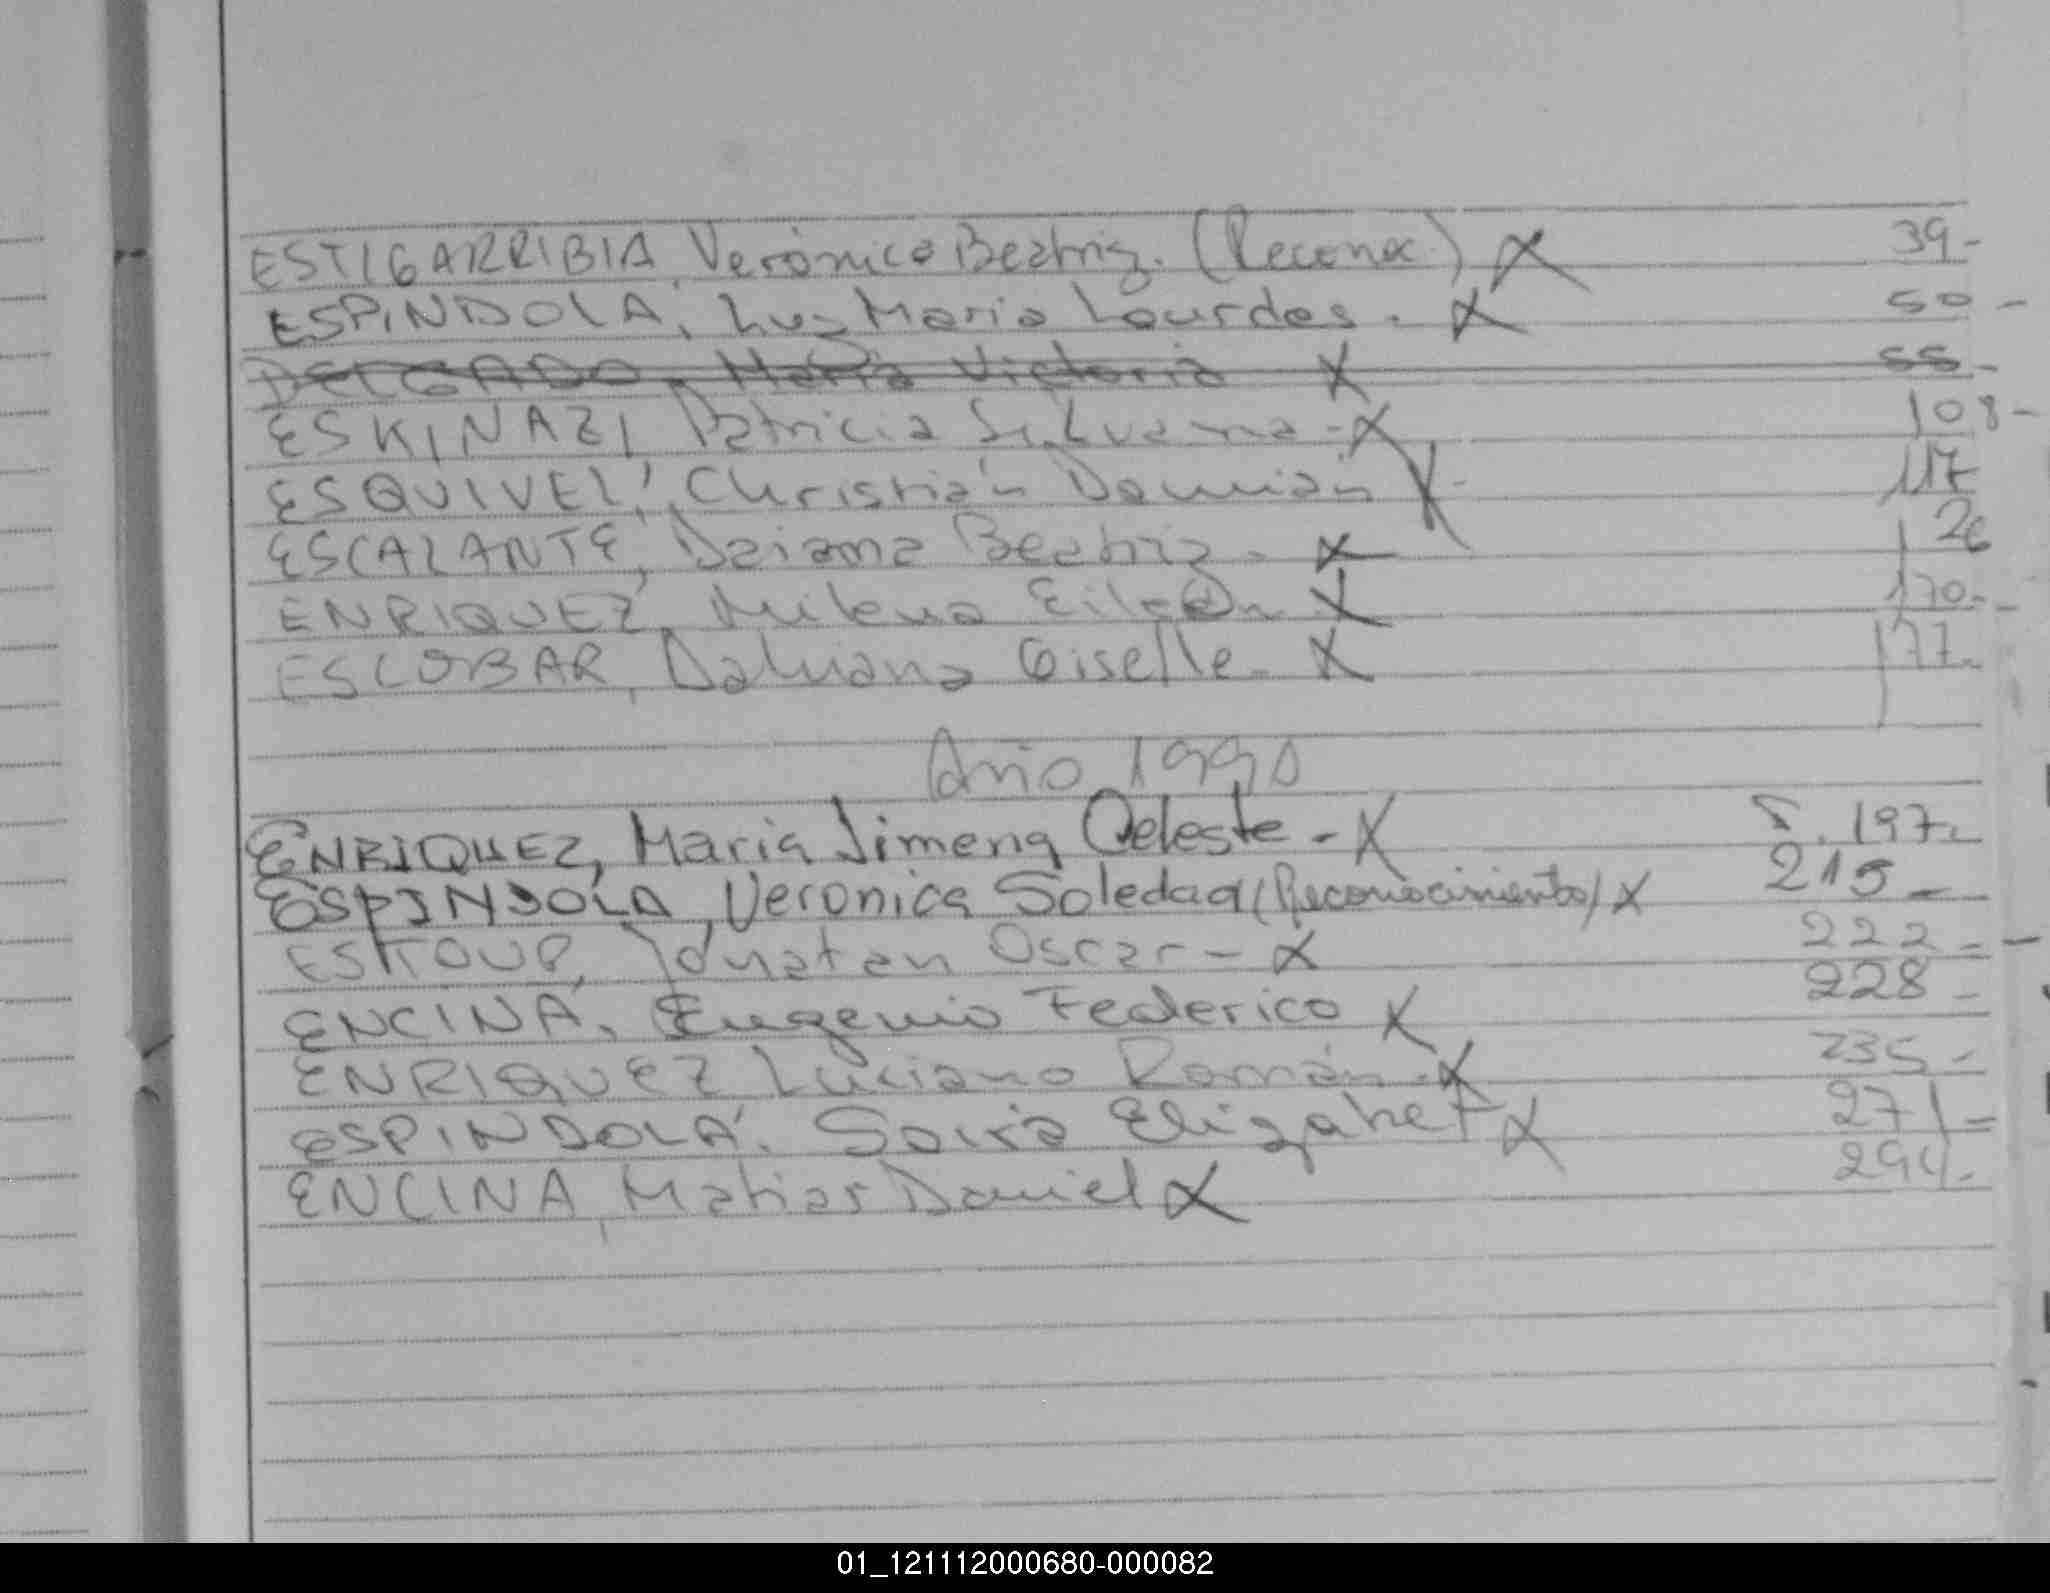 ESTIGARRIBIA, Verónica Beatriz. (Reconoc.) X 39-
ESPINDOLA, Luz Maria Lourdes. X 50-
DELGADO, Maria Victoria X 55-
ESKINAZI, Patricia Silvana - X 108-
ESQUIVEL, Christián Damián X- 117
ESCALANTE, Daiana Beatriz - X 126
ENRIQUEZ, Milena Eileen X 170-
ESCOBAR, Daluana Giselle - X 177-
Año 1990
ENRIQUEZ, Maria Jimena Celeste - X 197-
ESPINDOLA, Veronica Soledad (Reconocimiento) X 215-
ESKOUP, Jonatan Oscar - X 222-
ENCINA, Eugenio Federico X 228-
ENRIQUEZ Luciano Román - X 235-
ESPINDOLA. Elizabet X 271-
ENCINA, Matias Daniel X 294-
01_121112000680-000082